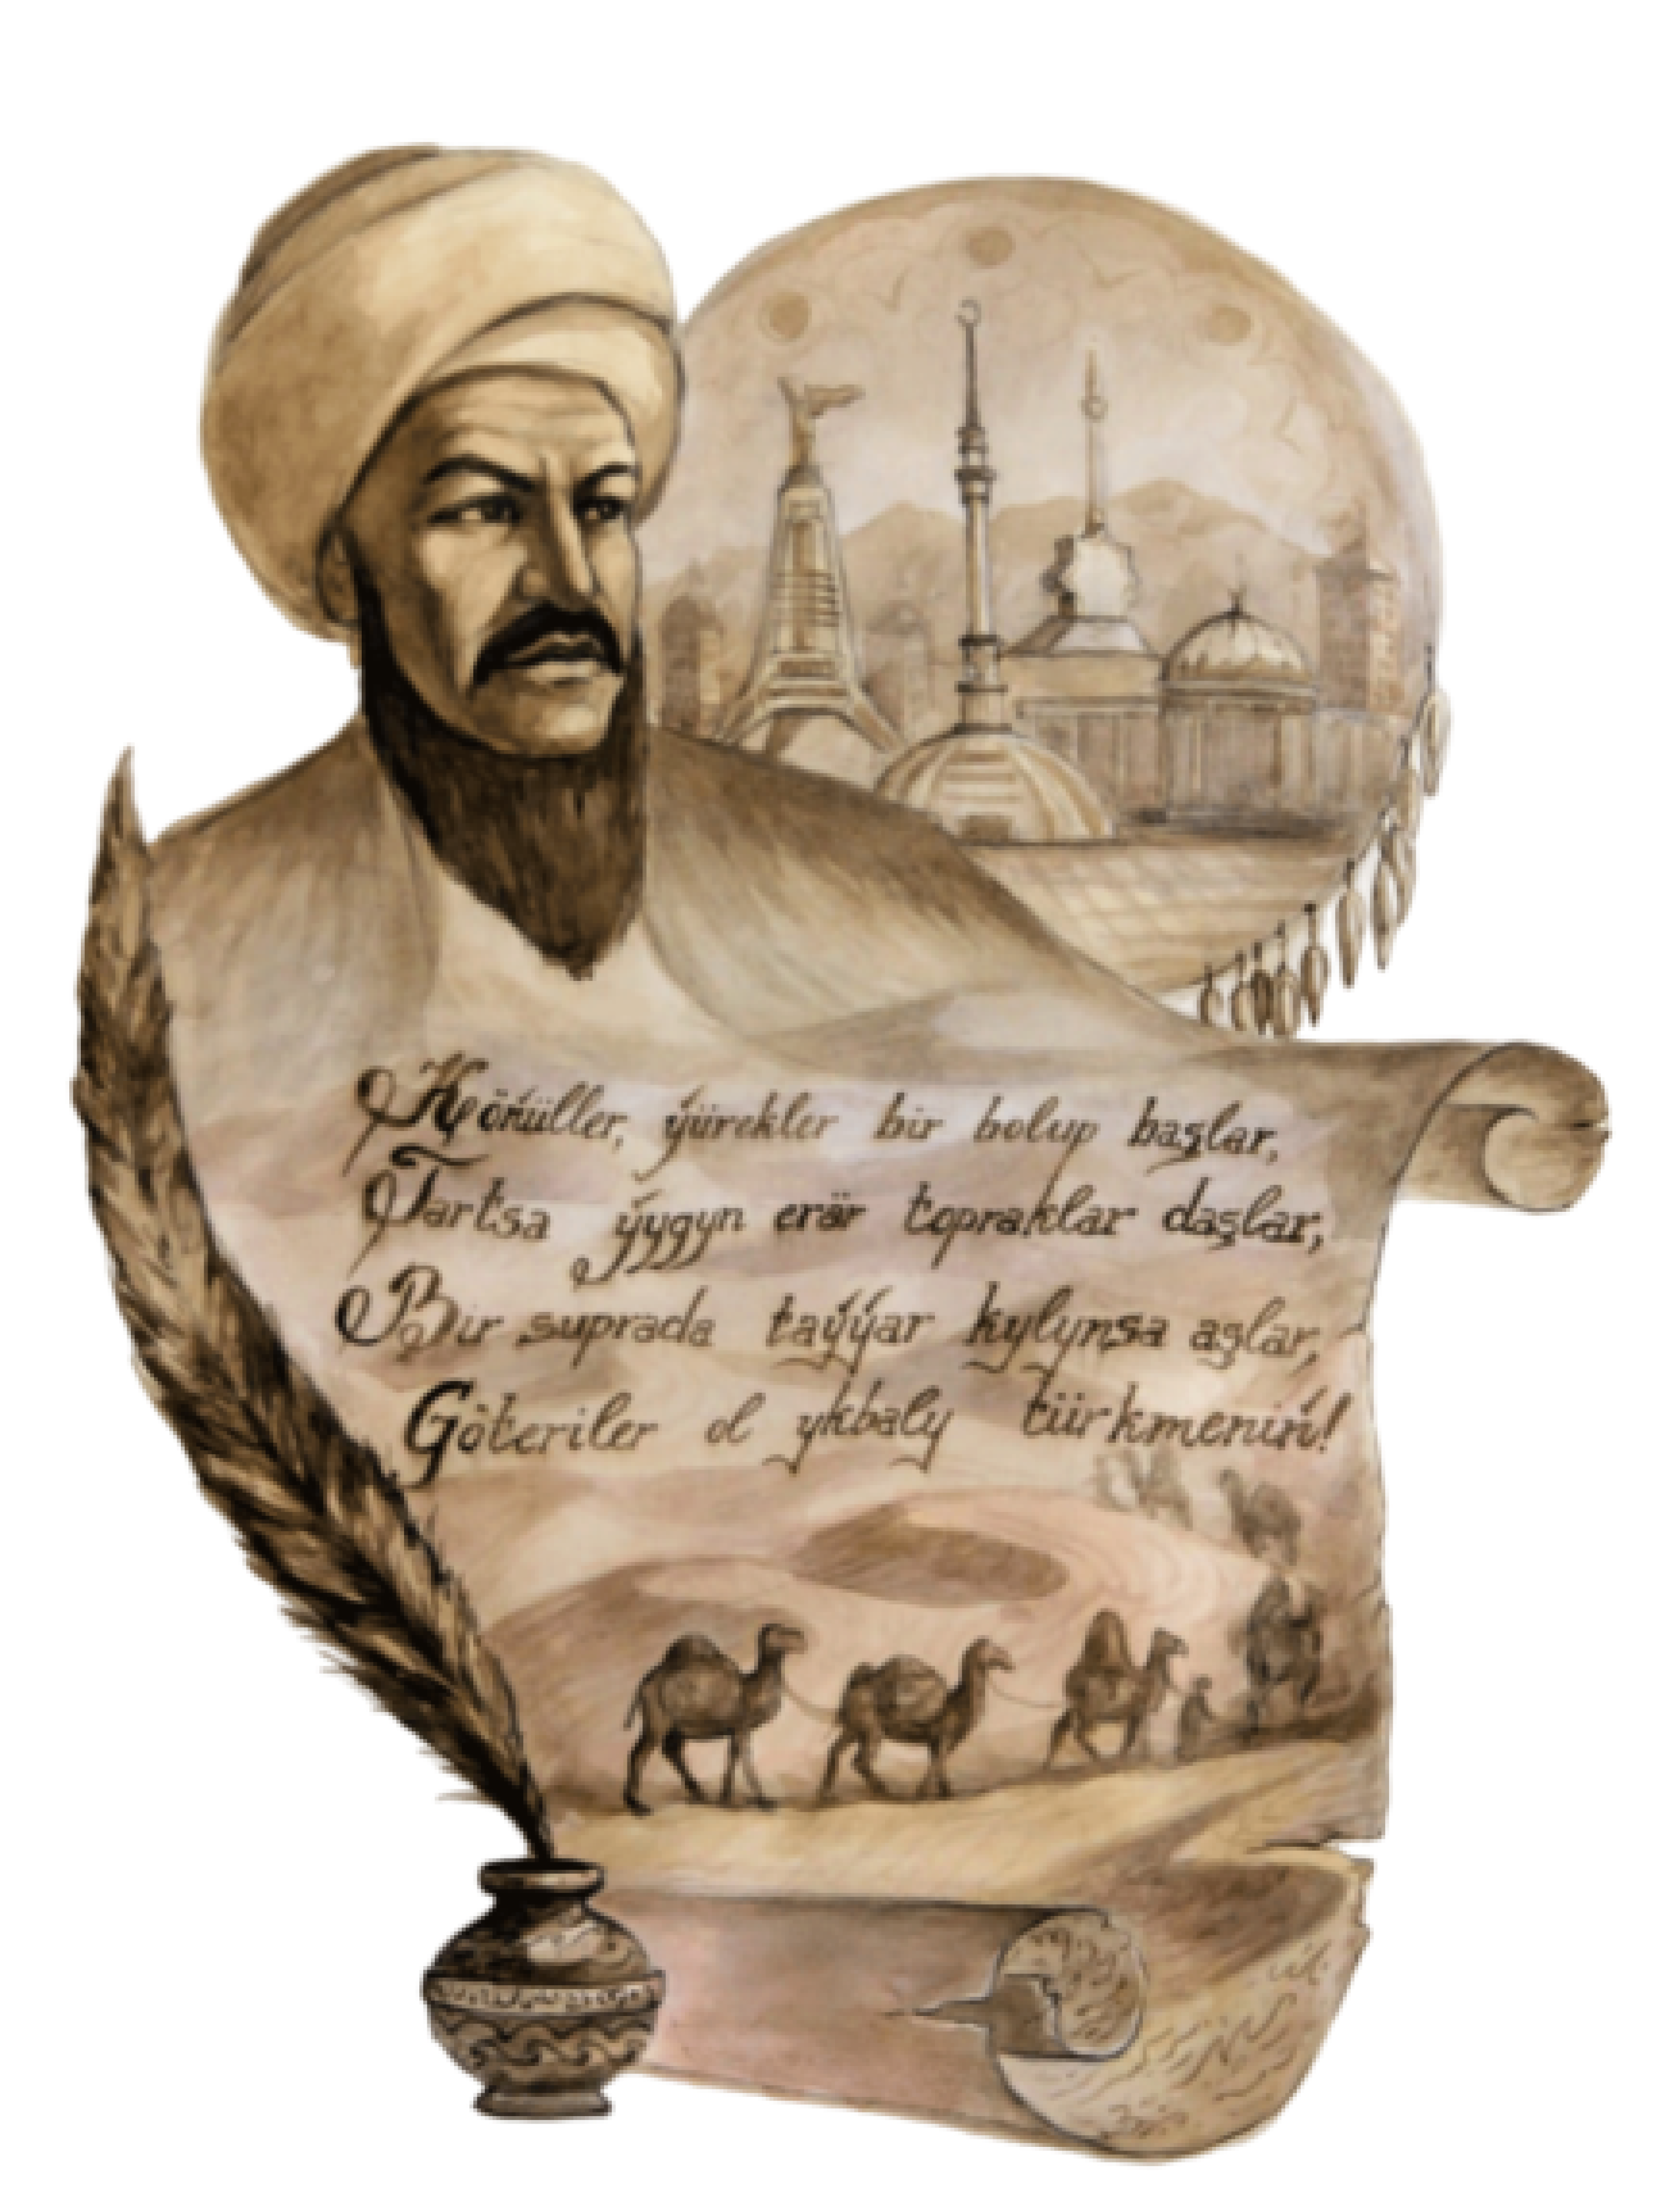 Köňüller, ýürekler bir bolup başlar,
Tartsa ýygyn erär topraklar daşlar,
Bir suprada taýýar kylynsa aşlar,
Göteriler ol ykbaly türkmeniň!